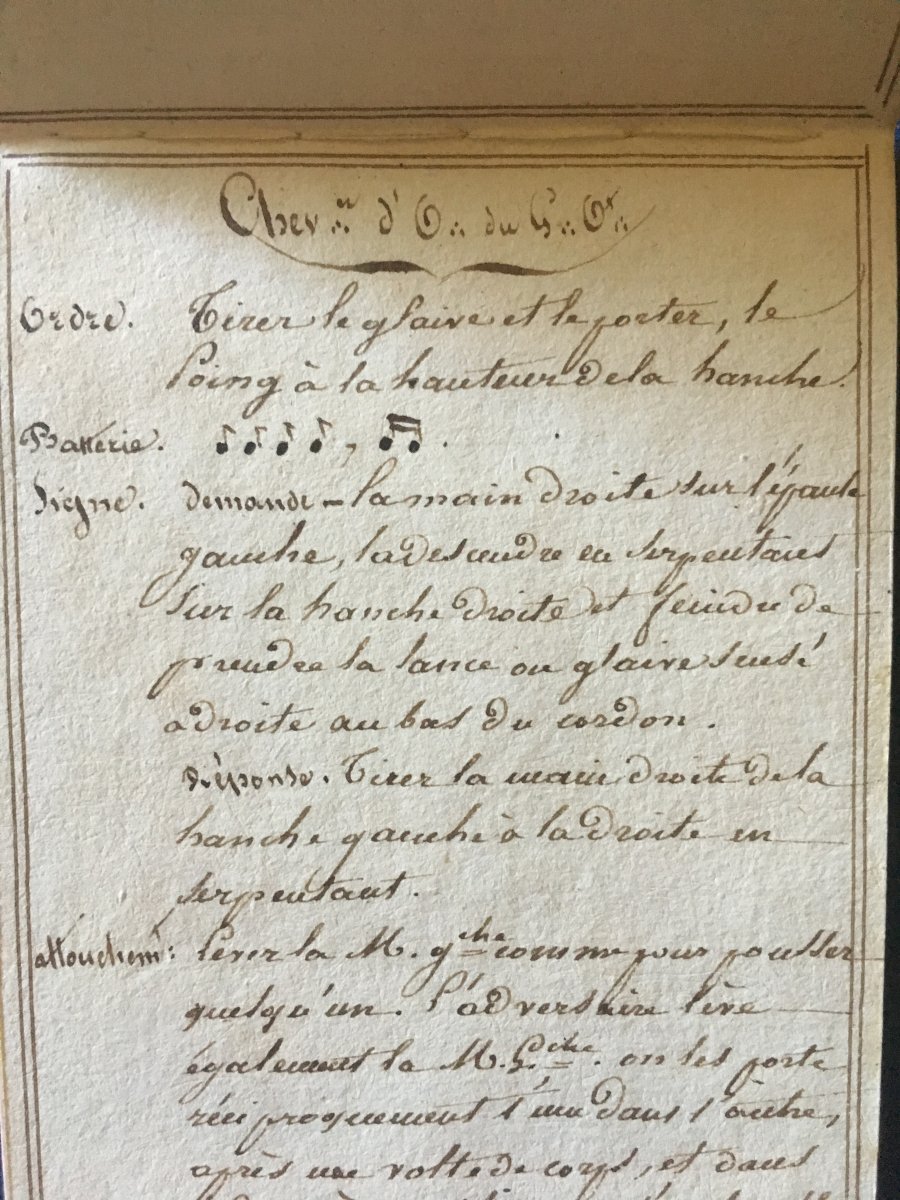 Chev∴er d'O∴ du G∴ Or∴
Ordre. Tirer le glaive et le porter, le
Poing à la hauteur de la hanche.
Batterie. ♪ ♪ ♪ ♪ , ♫ .
Signe. demande – la main droite sur l'épaule
gauche, la descendre en serpentant
sur la hanche droite et feindre de
prendre la lance ou glaive sensé
à droite au bas du cordon.
Réponse. Tirer la main droite de la
hanche gauche à la droite en
serpentant.
attouchem: lever la M. gche comme pour pousser
quelqu'un. L'adversaire lève
également la M. Gche. on les porte
réciproquement l'une dans l'autre,
après une volte de corps, et dans